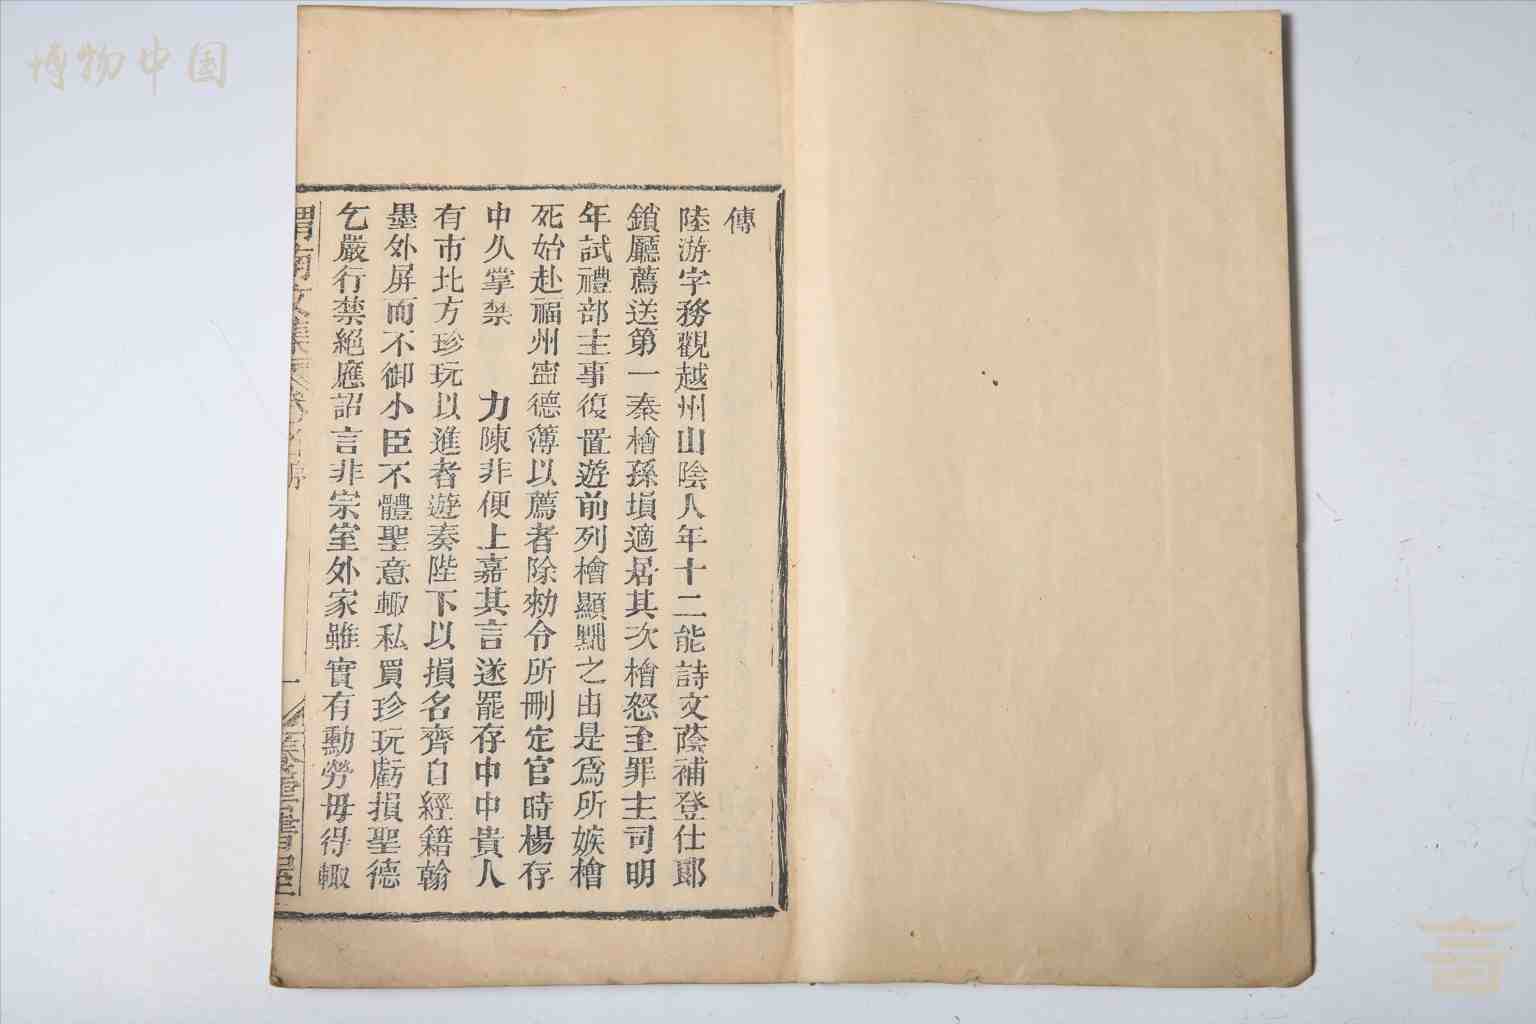 博物中国
傳
陸游字務觀越州山陰人年十二能詩文蔭補登仕郎
鎖廳薦送第一秦檜孫塤適居其次檜怒至罪主司明
年試禮部主事復置遊前列檜顯黜之由是爲所嫉檜
死始赴福州寧德薄以薦者除勑令所刪定官時楊存
中久掌禁 力陳非便上嘉其言遂罷存中中貴人
有市北方珍玩以進者遊奏陛下以損名齊自經籍翰
墨外屏而不御小臣不體聖意輙私買珍玩虧損聖德
乞嚴行禁絕應詔言非宗室外家雖實有勳勞毋得輙
渭南文集
一